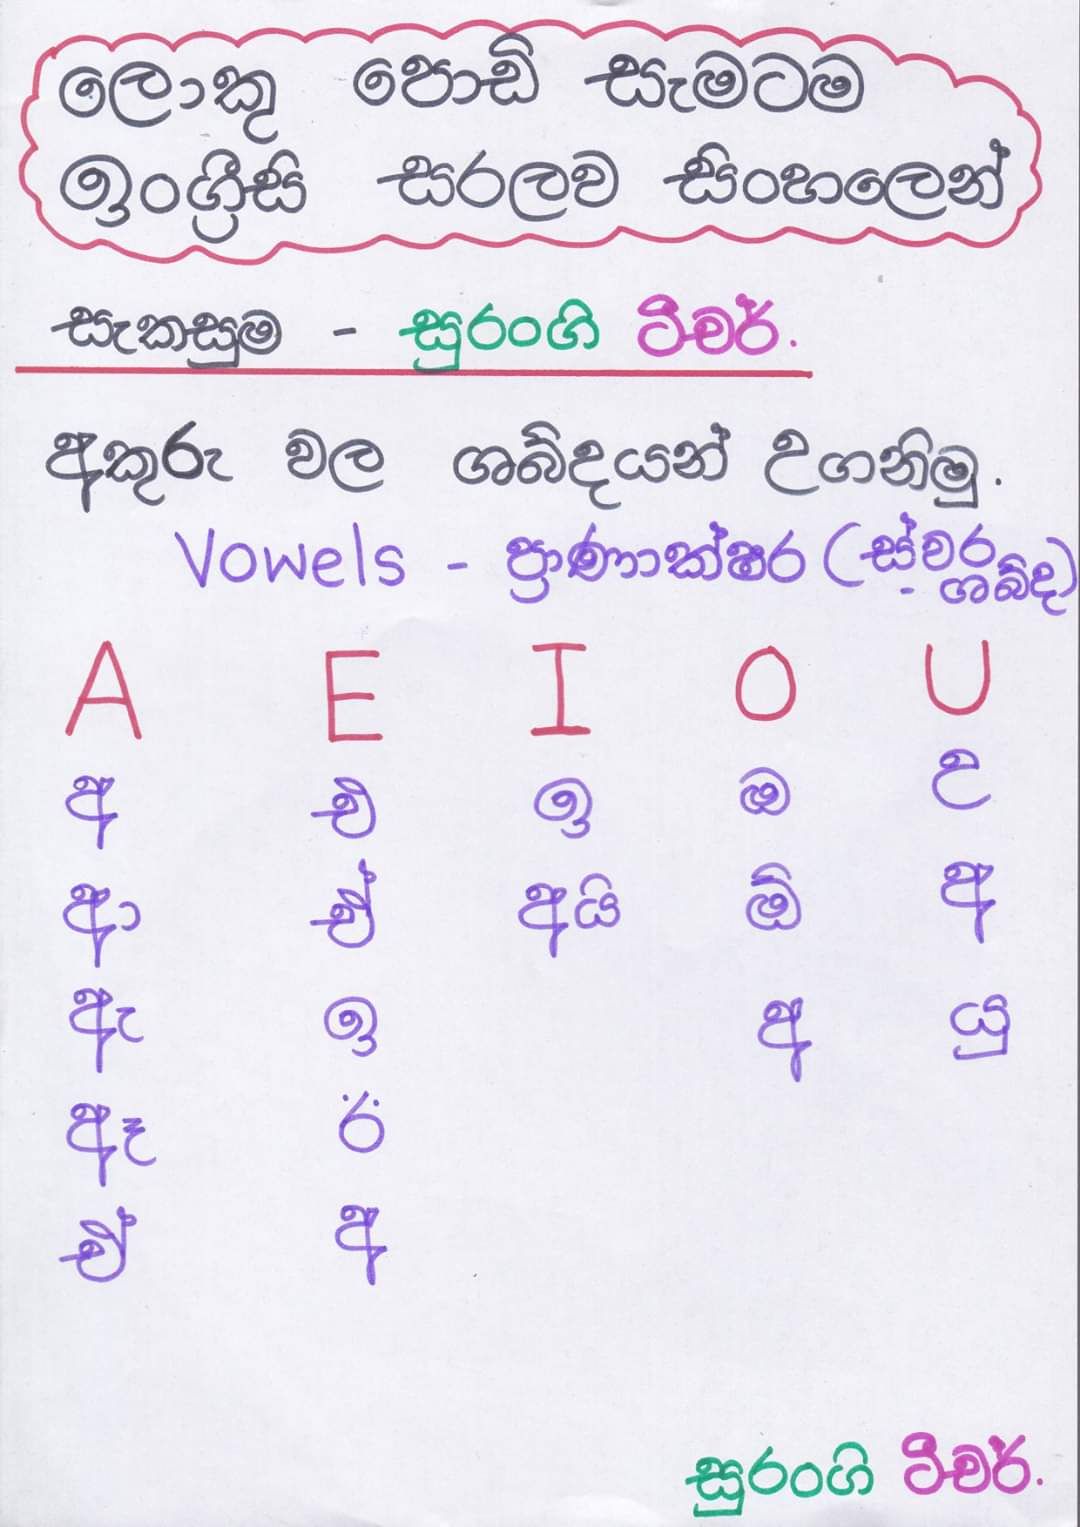 ලොකු පොඩි සැමටම
ඉංග්‍රීසි සරලව සිංහලෙන්
සැකසුම - සුරංගි ටීචර්.
අකුරු වල ශබ්දයන් උගනිමු.
Vowels - ප්‍රාණාක්ෂර (ස්වර - ශබ්ද)
A E I O U
අ එ ඉ ඔ උ
ආ ඒ අයි ඕ අ
ඇ ඉ අ යු
ඈ ඊ
ඒ අ
සුරංගි ටීචර්.